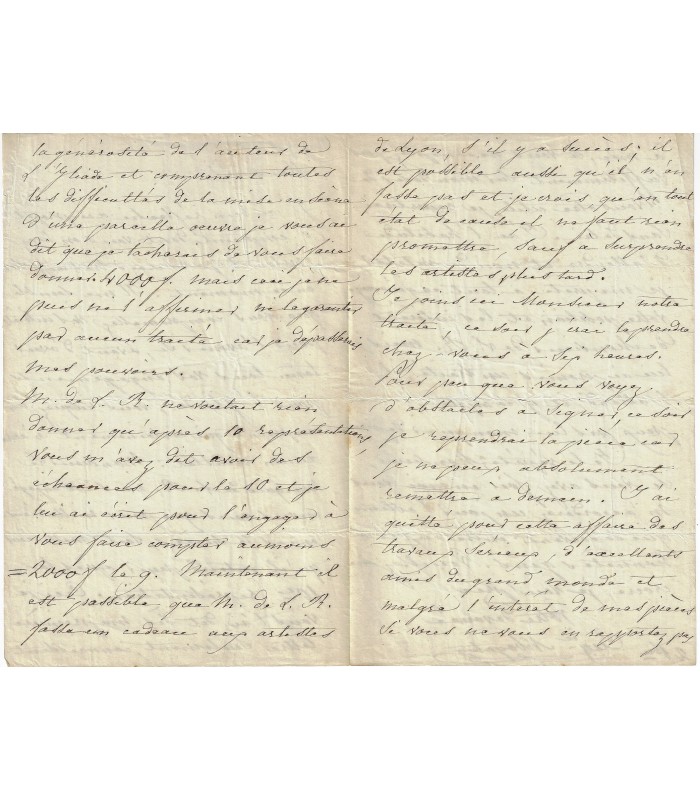 la générosité de l'auteur de
L'Iliade et comprenant toutes
les difficultés de la mise en scène
d'une pareille oeuvre je vous ai
dit que je tacherais de vous faire
donner 4000f. mais comme je ne
puis ne l'affirmer ne le garantir
par aucun traité car je dépasserais
mes pouvoirs.
M. de L. R. ne voulait rien
donner qu'après 10 représentations,
vous m'avez dit avoir des
échéances pour le 10 et je
lui ai écrit pour l'engager à
vous faire compter au moins
= 2000f le 9. Maintenant il
est possible que M. de L. R.
fasse un cadeau aux artistes
de Lyon, s'il y a succès; il
est possible aussi qu'il n'en
fasse pas et je crois qu'en tout
état de cause il ne faut rien
promettre sauf à surprendre
les artistes, plus tard.
Je joins ici Monsieur notre
traité, ce soir j'irai le prendre
chez vous à six heures.
Pour peu que vous voyez
d'obstacles à signer, ce soir
je reprendrai la pièce car
je ne peux absolument
remettre à demain. J'ai
quitté pour cette affaire des
travaux sérieux, d'excellents
amis du grand monde et
malgré l'intérêt de mes pièces
Si vous ne vous en rapportez pas